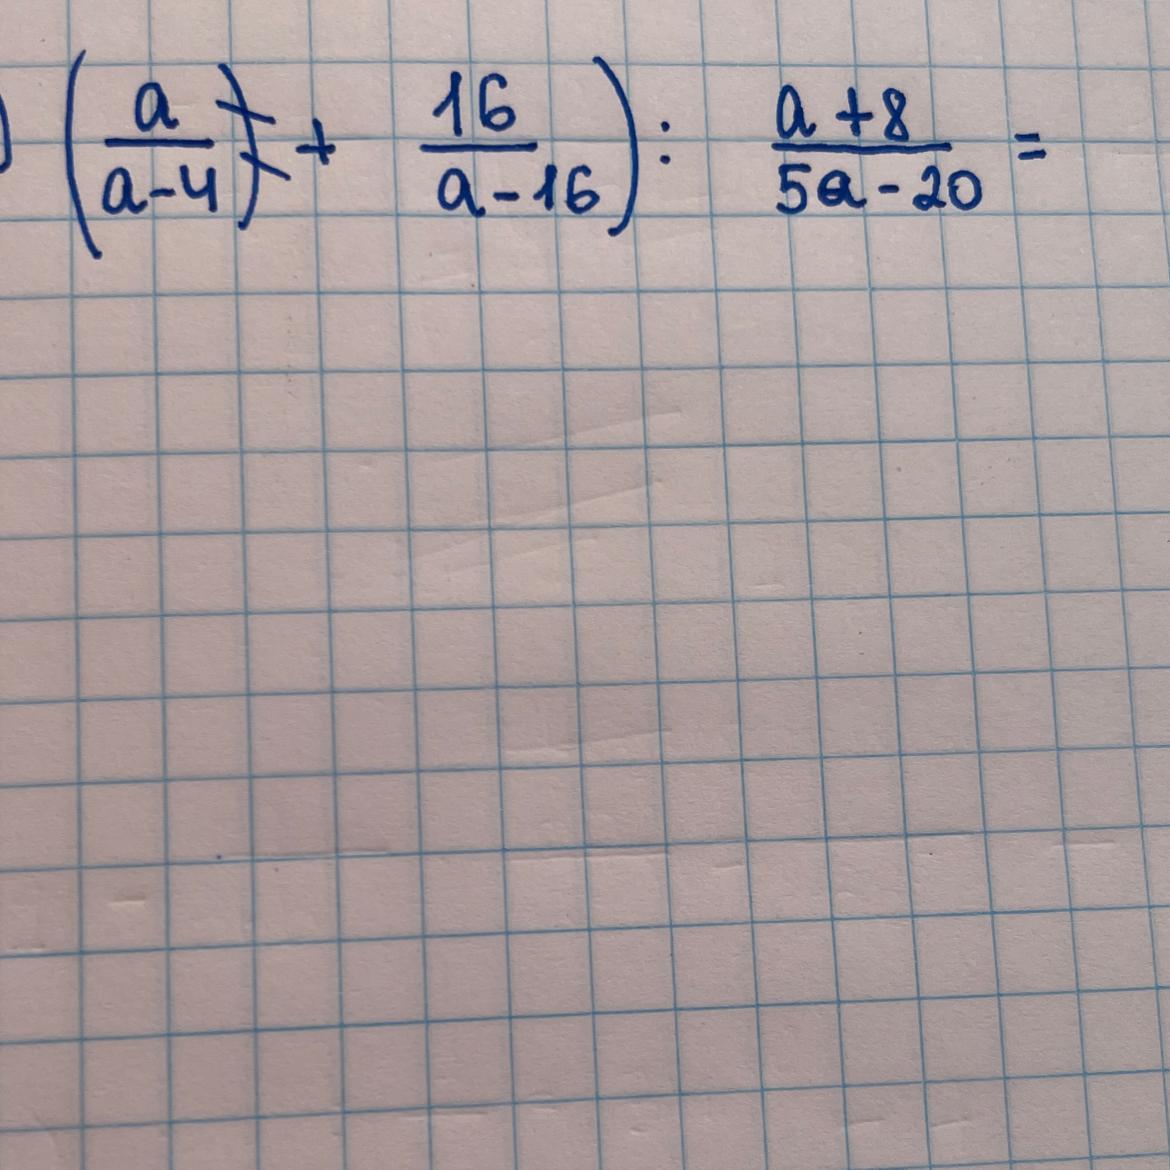 ) (a/(a-4) + 16/(a-16)) : (a+8)/(5a-20) =